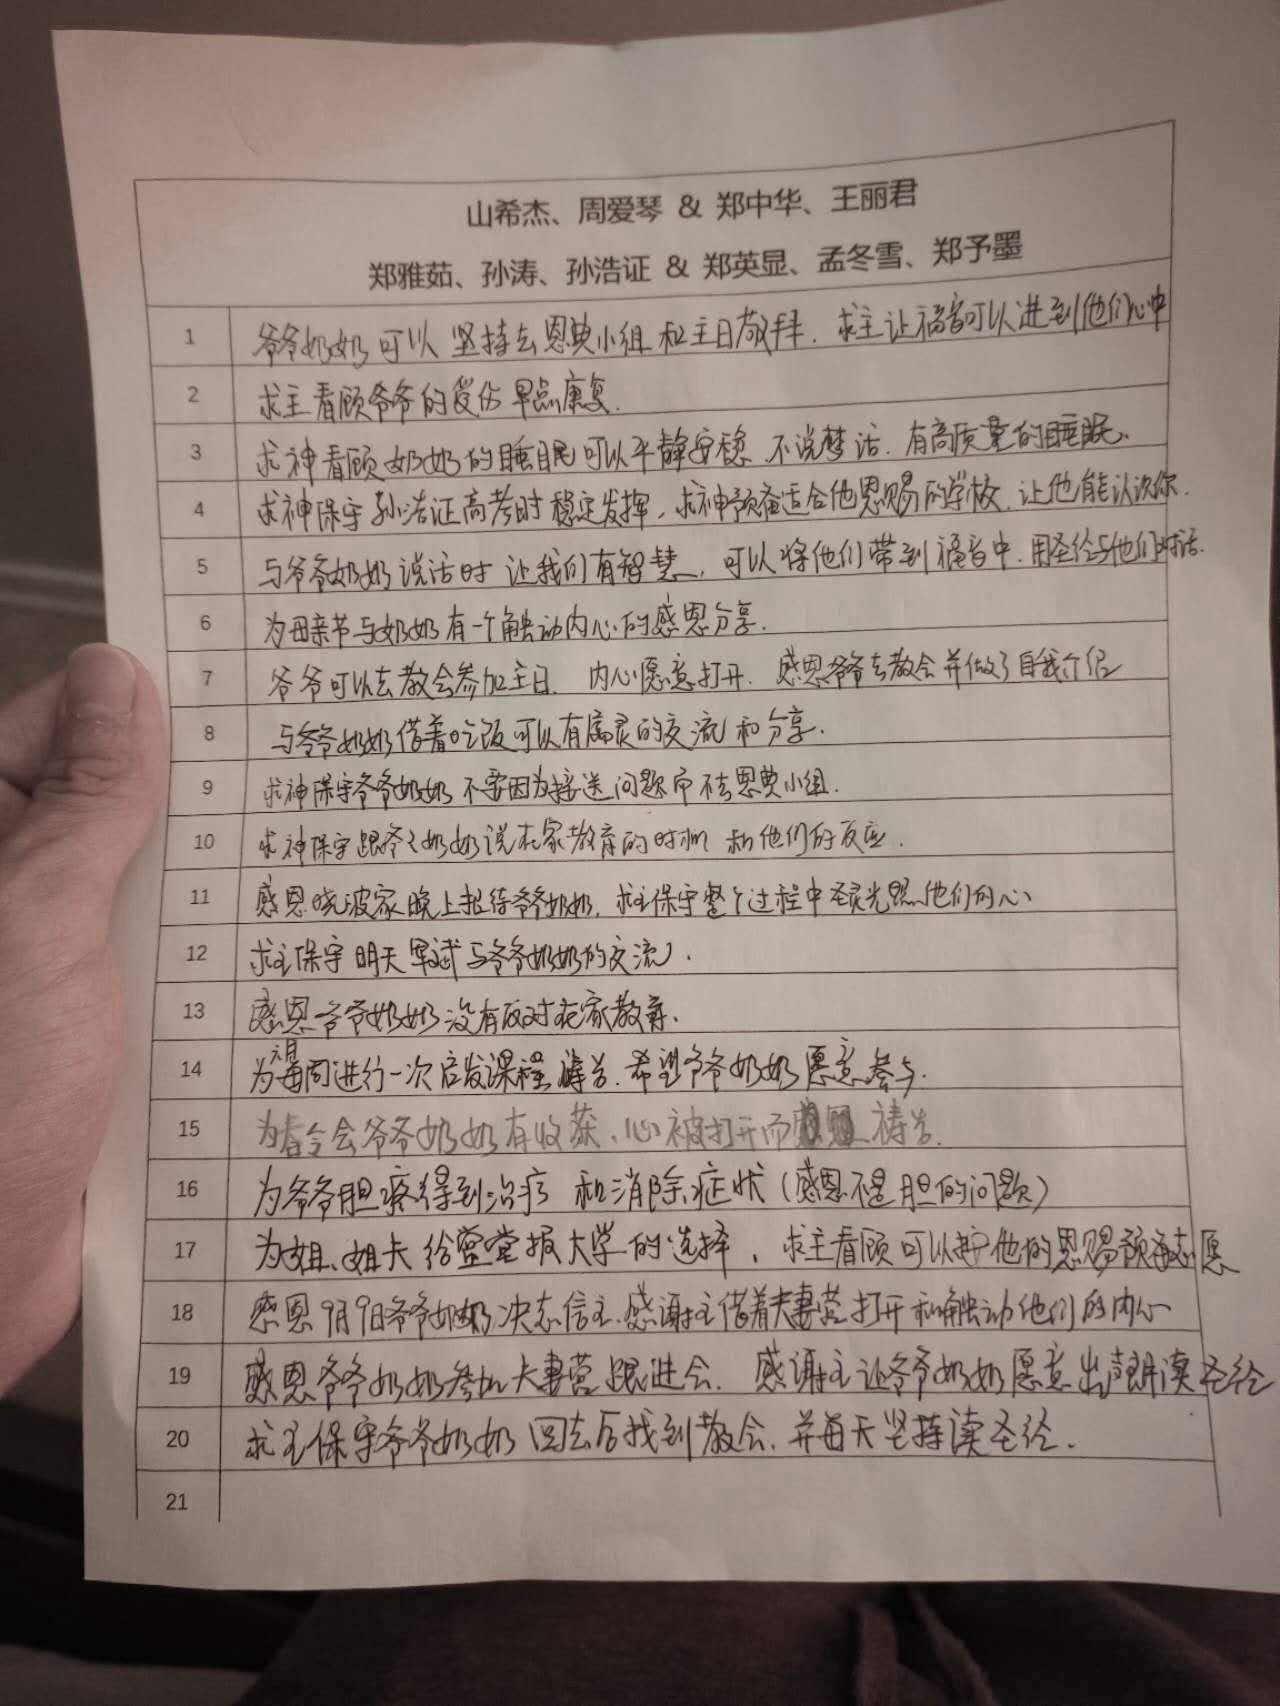 山希杰、周爱琴 & 郑中华、王丽君
郑雅茹、孙涛、孙浩证 & 郑英显、孟冬雪、郑予墨
1 爷爷奶奶可以坚持去恩典小组和主日敬拜. 求主让福音可以进到他们心中
2 求主看顾爷爷的受伤早点康复.
3 求神看顾奶奶的睡眠可以平静安稳 不说梦话. 有高质量的睡眠.
4 求神保守孙浩证高考时稳定发挥, 求神预备适合他恩赐的学校. 让他能认识你.
5 与爷爷奶奶说话时 让我们有智慧, 可以将他们带到福音中. 用圣经与他们对话.
6 为母亲节与奶奶有一个触动内心的感恩分享.
7 爷爷可以去教会参加主日. 内心愿意打开. 感恩爷爷去教会并做了自我介绍
8 与爷爷奶奶借着吃饭可以有属灵的交流和分享.
9 求神保守爷爷奶奶不要因为接送问题而不去恩典小组.
10 求神保守跟爷爷奶奶说在家教育的时机 和他们的反应.
11 感恩晓波家晚上招待爷爷奶奶, 求主保守整个过程中圣灵光照他们的心
12 求主保守明天 与爷爷奶奶的交流.
13 感恩爷爷奶奶没有反对在家教育.
14 为每周进行一次启发课程祷告. 希望爷爷奶奶愿意参与.
15 为春令会爷爷奶奶有收获、心被打开而 祷告.
16 为爷爷胆疼得到治疗 和消除症状 (感恩不是胆的问题)
17 为姐、姐夫给 报大学的选择, 求主看顾可以按他的恩赐预备志愿
18 感恩9月9日爷爷奶奶决志信主. 感谢主借着夫妻营打开和触动他们的内心
19 感恩爷爷奶奶参加夫妻营跟进会. 感谢主让爷爷奶奶愿意出声朗读圣经
20 求主保守爷爷奶奶回去后找到教会. 并每天坚持读圣经.
21